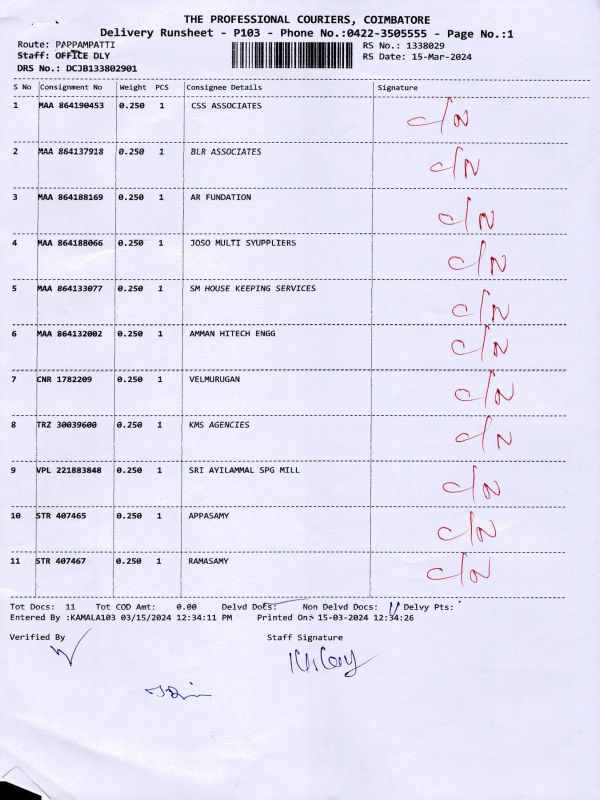 THE PROFESSIONAL COURIERS, COIMBATORE
Delivery Runsheet - P103 - Phone No.:0422-3505555 - Page No.:1
Route: PAPPAMPATTI RS No.: 1338029
Staff: OFFICE DLY RS Date: 15-Mar-2024
DRS No.: DCJB133802901
S No Consignment No Weight PCS Consignee Details Signature
1 MAA 864190453 0.250 1 CSS ASSOCIATES C/N
2 MAA 864137918 0.250 1 BLR ASSOCIATES C/N
3 MAA 864188169 0.250 1 AR FUNDATION C/N
4 MAA 864188066 0.250 1 JOSO MULTI SYUPPLIERS C/N
5 MAA 864133077 0.250 1 SM HOUSE KEEPING SERVICES C/N
6 MAA 864132002 0.250 1 AMMAN HITECH ENGG C/N
7 CNR 1782209 0.250 1 VELMURUGAN C/N
8 TRZ 30039600 0.250 1 KMS AGENCIES C/N
9 VPL 221883848 0.250 1 SRI AYILAMMAL SPG MILL C/N
10 STR 407465 0.250 1 APPASAMY C/N
11 STR 407467 0.250 1 RAMASAMY C/N
Tot Docs: 11 Tot COD Amt: 0.00 Delvd Docs: Non Delvd Docs: 11 Delvy Pts:
Entered By :KAMALA103 03/15/2024 12:34:11 PM Printed On: 15-03-2024 12:34:26
Verified By Staff Signature